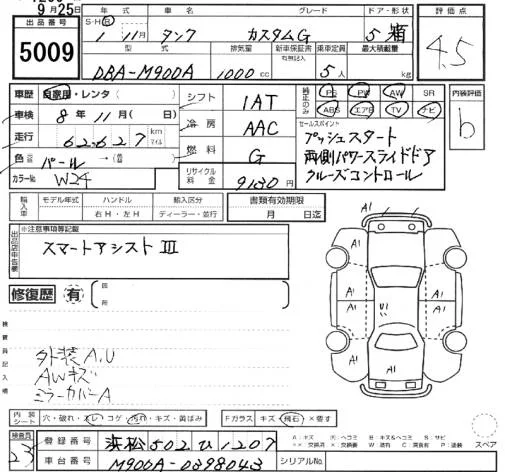 9月25日
出品番号
5009
年式 車名 グレード ドア・形状
S・H・R
1年 11月 タンク カスタムG 5 箱
型式 排気量 新車保証書 乗車定員 最大積載量
有無記入
DBA-M900A 1000cc 5人 kg
評価点
4.5
車歴 自家用・レンタ( )
車検 8年 11月( 日)
走行 62,627 km マイル
色 パール →(黒)
カラーNo. W24
シフト 1AT
冷房 AAC
燃料 G
リサイクル料金 9130円
純正のみ PS PW AW SR
ABS エアB TV ナビ
内装評価
b
セールスポイント
プッシュスタート
両側パワースライドドア
クルーズコントロール
輸入車 モデル年式 ハンドル 輸入区分
年 右H・左H ディーラー・並行
書類有効期限
月 日迄
出品店申告欄
※注意事項等記載
スマートアシストⅢ
修復歴 有
箇所
検査員記入欄
外装A,U
AWキズ
ミラーカバーA
A1
A1 A1
A1 A1
U1
A1
スペア
内装シート 穴・破れ・スレ・コゲ・汚れ・キズ・黄ばみ
Fガラス キズ・飛石・×要す
A:キズ U:ヘコミ B:キズ&ヘコミ S:サビ
××:交換済 X:交換要 W:波有 C:腐食有 P:塗装
検査員
23
登録番号 浜松502ひ1207
車台番号 M900A-0398043
シリアルNo.